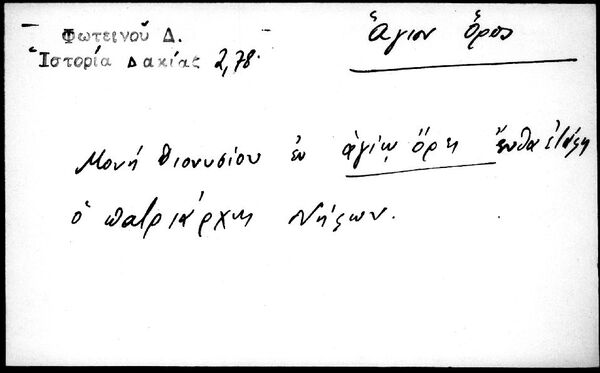 Φωτεινοῦ Δ.
Ἱστορία Δακίας 2,78.
Ἅγιον ὄρος
Μονή Διονυσίου ἐν ἁγίῳ ὄρει ἔνθα ἐτάφη
ὁ πατριάρχης Νήφων.